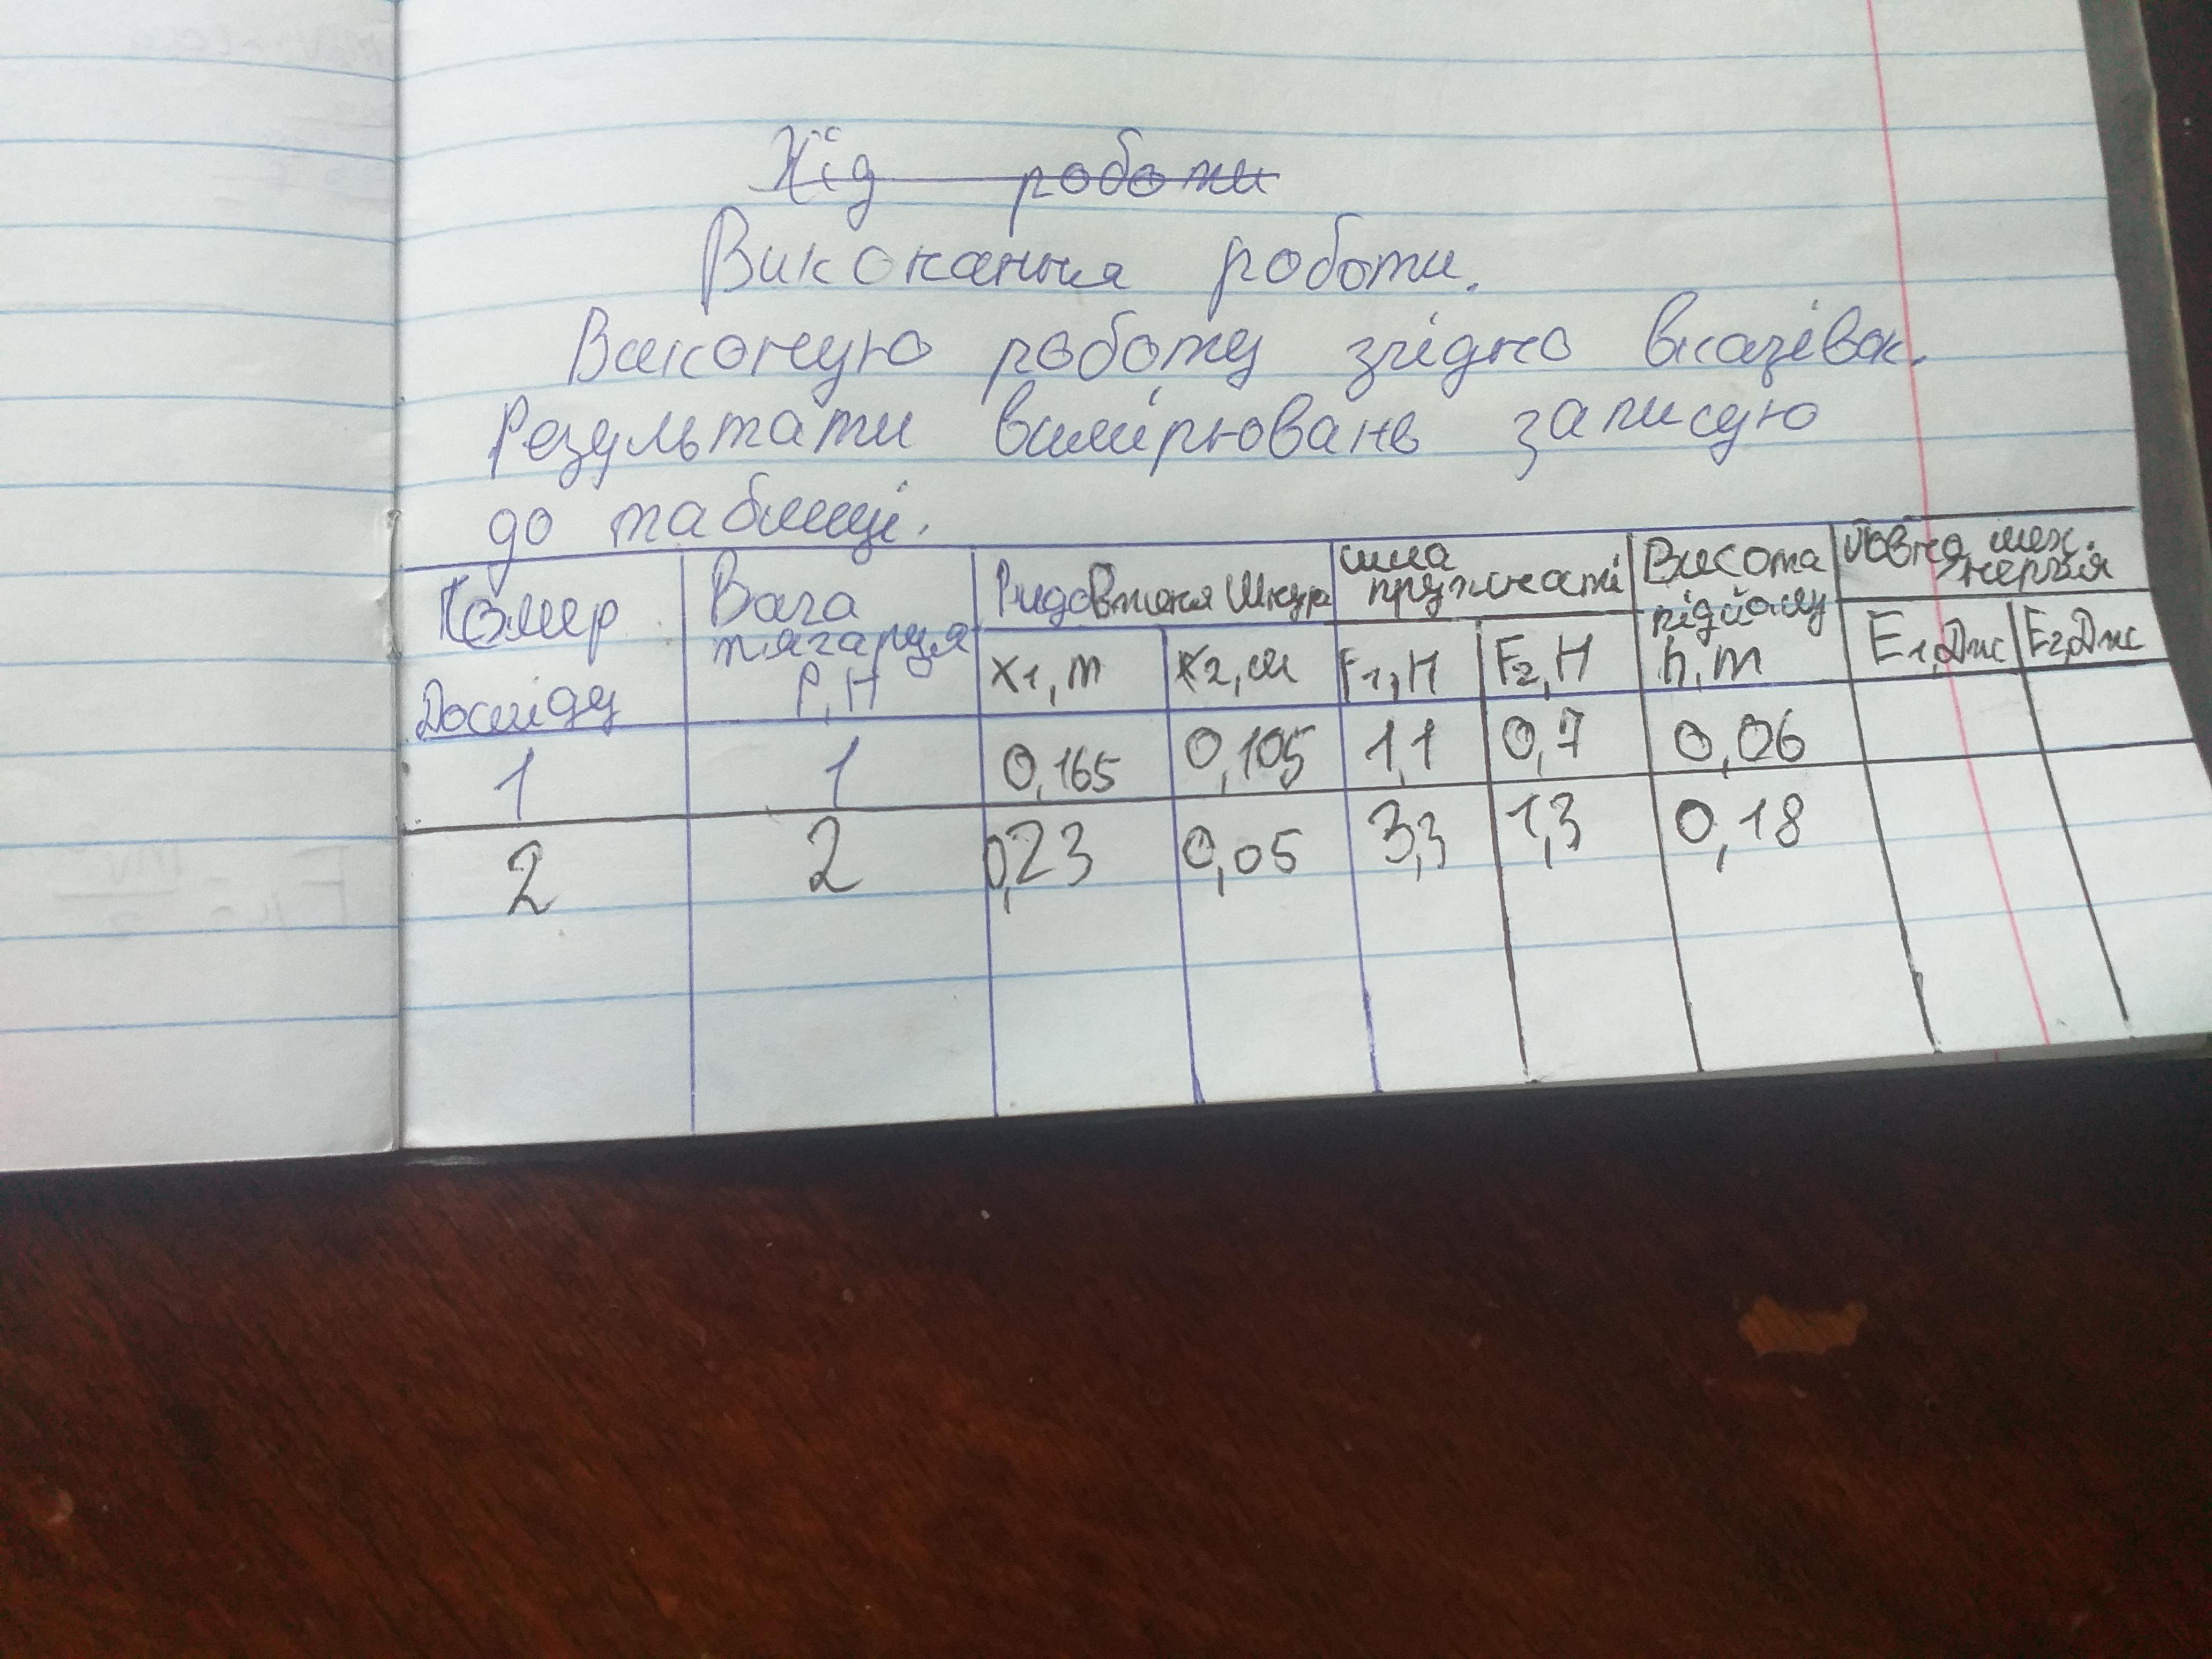 Хід роботи
Виконання роботи.
Виконую роботу згідно вказівок.
Результати вимірювань записую
до таблиці.
Номер Досліду | Вага тягарця P, Н | Видовження шнура | сила пружності | Висота підйому h, m | Повна мех. энергія
x1, m | x2, м | F1, Н | F2, Н | E1, Дж | E2, Дж
1 | 1 | 0,165 | 0,105 | 1,1 | 0,7 | 0,06
2 | 2 | 0,23 | 0,05 | 3,3 | 1,3 | 0,18